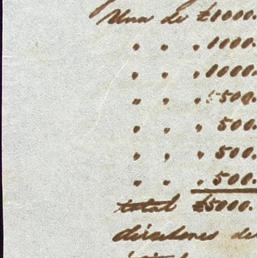 Una de £1000.
" " " 1000.
" " " 1000.
" " " 500.
" " " 500.
" " " 500.
" " " 500.
total £5000.
direcciones de